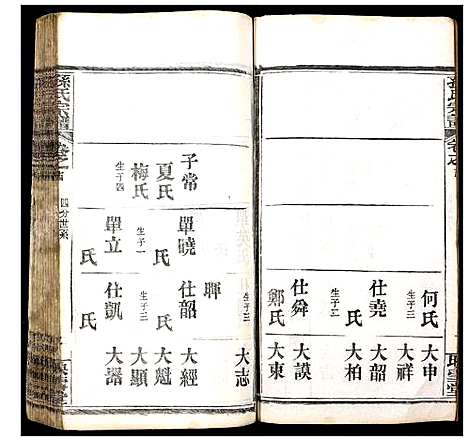 何氏
生子三
大申
大祥
仕堯
氏
生子二
大韶
大柏
仕舜
鄭氏
生子二
大謨
大東
大志
子常
夏氏
梅氏
生子四
單曉
氏
生子一
單立
氏
暉
仕韶
生子三
仕凱
氏
大經
大魁
大顯
大器
孫氏宗譜
四分世系